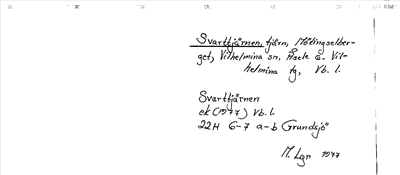 Svarttjärnen, tjärn, Mötingselber-
get, Vilhelmina sn, Åsele o. Vil-
helmina tg, Vb. l.
Svarttjärnen
ek (1977) Vb. l.
22H 6-7 a-b Grundsjö
M. Lgr 1977